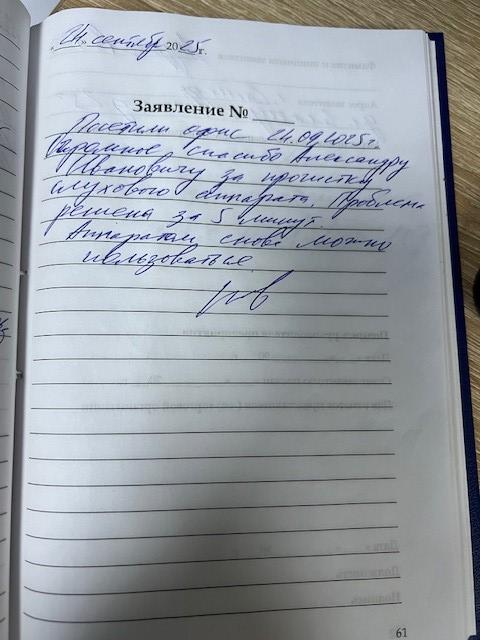 « 24 » сентябр 2025 г.
Заявление № ____
Посетили офис 24.09.2025г.
Огромное спасибо Александру
Ивановичу за прочистку
слухового аппарата. Проблема
решена за 5 минут.
Аппаратом снова можно
пользоваться
61